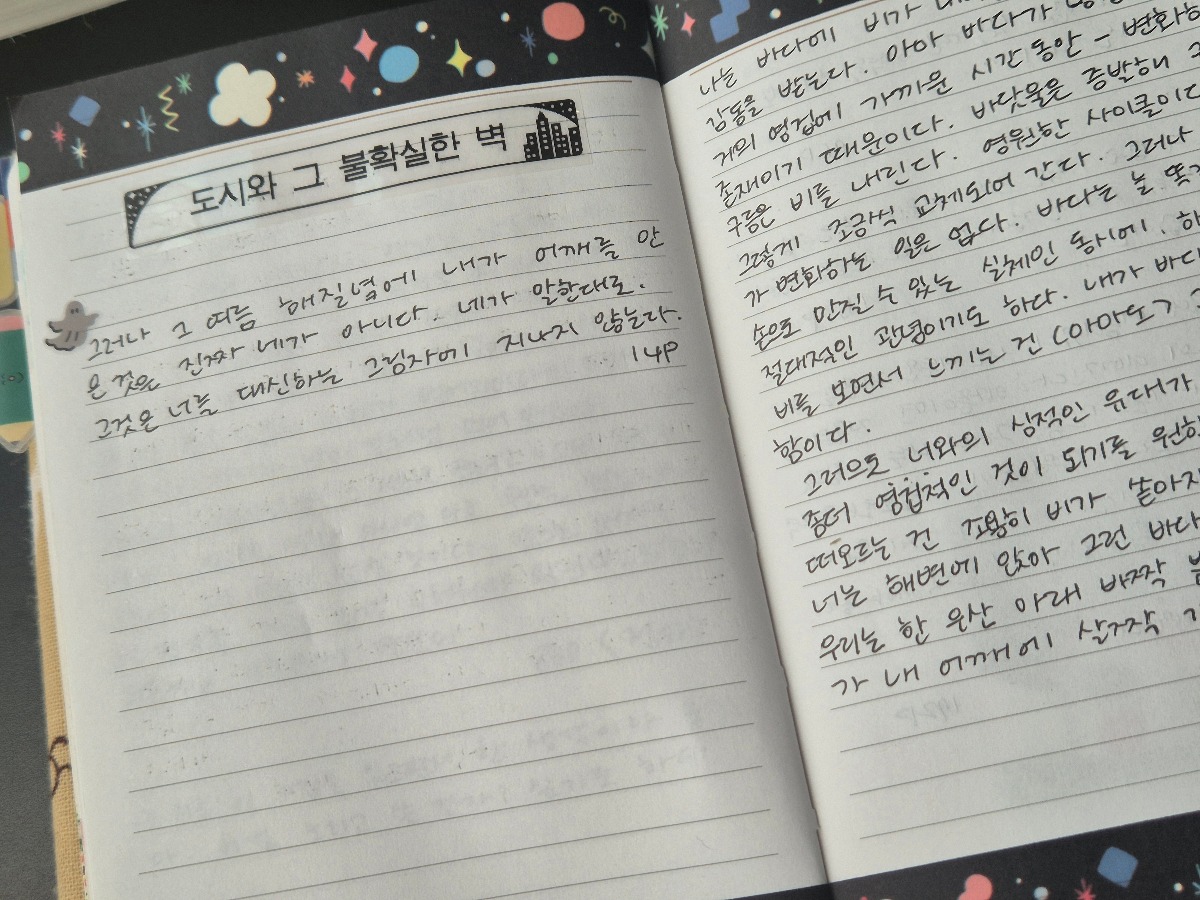 도시와 그 불확실한 벽
그러나 그 여름 해질녘에 내가 어깨를 안
은 것은 진짜 네가 아니다. 네가 말한대로.
그것은 너를 대신하는 그림자에 지나지 않는다.
14P
나는 바다에 비가
감동을 받는다. 아마 바다가
거의 영겁에 가까운 시간 동안 - 변화하
존재이기 때문이다. 바닷물은 증발해
구름은 비를 내린다. 영원한 사이클이다
그렇게 조금씩 교체되어 간다. 그러나
가 변화하는 일은 없다. 바다는 늘 똑
손으로 만질 수 있는 실체인 동시에, 하
절대적인 관념이기도 하다. 내가 바다
비를 보면서 느끼는 건 (아마도)
함이다.
그러므로 너와의 심적인 유대가
좀더 영겁적인 것이 되기를 원한
떠오르는 건 고요히 비가 쏟아지
너는 해변에 앉아 그런 바다
우리는 한 우산 아래 바짝
가 내 어깨에 살짝 기